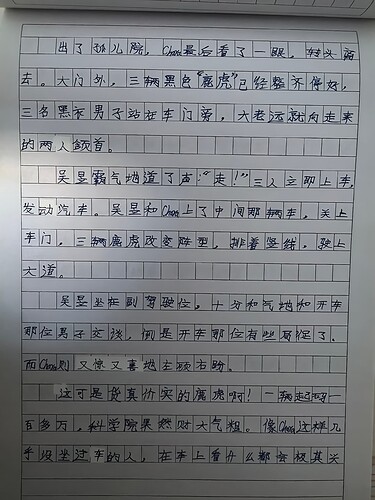 出了孤儿院，Chou最后看了一眼，转头离
去。大门外，三辆黑色“鹰虎”已经整齐停好，
三名黑衣男子站在车门旁，大老远就向走来
的两人颔首。
吴昱霸气地道了声：“走！”三人立即上车，
发动汽车。吴昱和Chou上了中间那辆车。关上
车门，三辆鹰虎改变阵型，排着竖线，驶上
大道。
吴昱坐在副驾驶位，十分和气地和开车
那位男子交谈，倒是开车那位有些局促了。
而Chou则又惊又喜地左顾右盼。
这可是货真价实的鹰虎啊！一辆起码一
百多万，科学院果然财大气粗。像Chou这样几
乎没坐过车的人，在车上看什么都会极其关